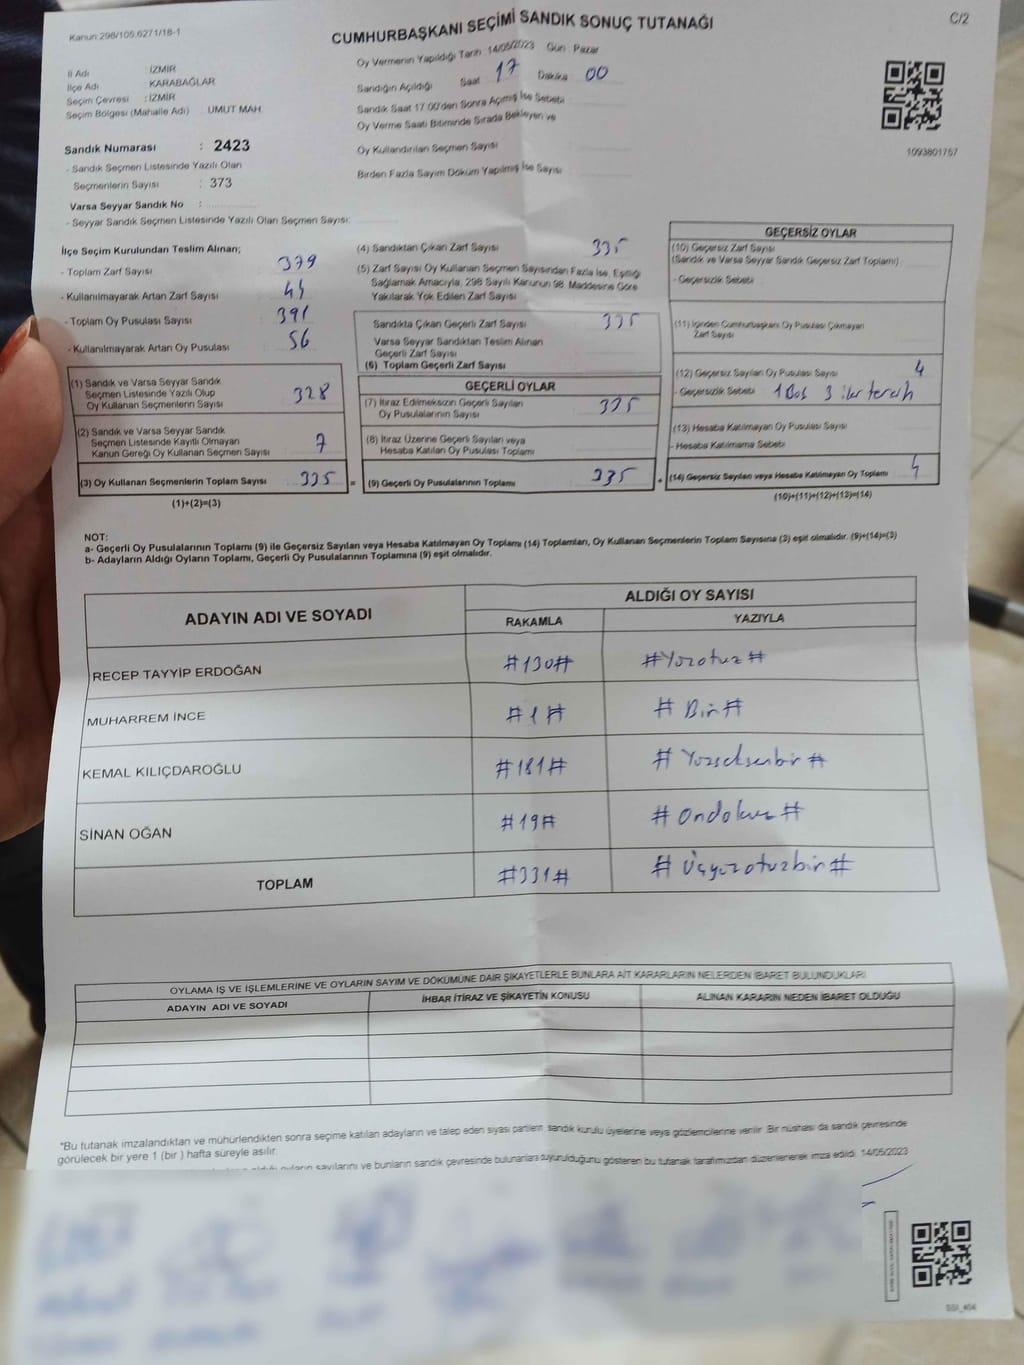 Kanun:298/105,6271/18-1
CUMHURBAŞKANI SEÇİMİ SANDIK SONUÇ TUTANAĞI
C/2
İl Adı İZMİR
İlçe Adı KARABAĞLAR
Seçim Çevresi : İZMİR
Seçim Bölgesi (Mahalle Adı) UMUT MAH.
Oy Vermenin Yapıldığı Tarih 14/05/2023 Gün : Pazar
Sandığın Açıldığı Saat 17 Dakika 00
Sandık Saat 17.00'den Sonra Açılmış İse Sebebi
Oy Verme Saati Bitiminde Sırada Bekleyen ve
Oy Kullandırılan Seçmen Sayısı
Birden Fazla Sayım Döküm Yapılmış İse Sayısı
1093801757
Sandık Numarası : 2423
- Sandık Seçmen Listesinde Yazılı Olan
Seçmenlerin Sayısı : 373
Varsa Seyyar Sandık No :
- Seyyar Sandık Seçmen Listesinde Yazılı Olan Seçmen Sayısı:
İlçe Seçim Kurulundan Teslim Alınan;
- Toplam Zarf Sayısı 379
- Kullanılmayarak Artan Zarf Sayısı 44
- Toplam Oy Pusulası Sayısı 391
- Kullanılmayarak Artan Oy Pusulası 56
(1) Sandık ve Varsa Seyyar Sandık
Seçmen Listesinde Yazılı Olup
Oy Kullanan Seçmenlerin Sayısı 328
(2) Sandık ve Varsa Seyyar Sandık
Seçmen Listesinde Kayıtlı Olmayan
Kanun Gereği Oy Kullanan Seçmen Sayısı 7
(3) Oy Kullanan Seçmenlerin Toplam Sayısı 335 =
(1)+(2)=(3)
(4) Sandıktan Çıkan Zarf Sayısı 335
(5) Zarf Sayısı Oy Kullanan Seçmen Sayısından Fazla İse, Eşitliği
Sağlamak Amacıyla, 298 Sayılı Kanunun 98. Maddesine Göre
Yakılarak Yok Edilen Zarf Sayısı
Sandıkta Çıkan Geçerli Zarf Sayısı 335
Varsa Seyyar Sandıktan Teslim Alınan
Geçerli Zarf Sayısı
(6) Toplam Geçerli Zarf Sayısı
GEÇERLİ OYLAR
(7) İtiraz Edilmeksizin Geçerli Sayılan
Oy Pusulalarının Sayısı 335
(8) İtiraz Üzerine Geçerli Sayılan veya
Hesaba Katılan Oy Pusulası Toplamı
(9) Geçerli Oy Pusulalarının Toplamı 335 +
GEÇERSİZ OYLAR
(10) Geçersiz Zarf Sayısı
(Sandık ve Varsa Seyyar Sandık Geçersiz Zarf Toplamı)
- Geçersizlik Sebebi:
(11) İçinden Cumhurbaşkanı Oy Pusulası Çıkmayan
Zarf Sayısı
(12) Geçersiz Sayılan Oy Pusulası Sayısı 4
- Geçersizlik Sebebi 1 Boş 3 iki tercih
(13) Hesaba Katılmayan Oy Pusulası Sayısı
- Hesaba Katılmama Sebebi
(14) Geçersiz Sayılan veya Hesaba Katılmayan Oy Toplamı 4
(10)+(11)+(12)+(13)=(14)
NOT:
a- Geçerli Oy Pusulalarının Toplamı (9) ile Geçersiz Sayılan veya Hesaba Katılmayan Oy Toplamı (14) Toplamları, Oy Kullanan Seçmenlerin Toplam Sayısına (3) eşit olmalıdır. (9)+(14)=(3)
b- Adayların Aldığı Oyların Toplamı, Geçerli Oy Pusulalarının Toplamına (9) eşit olmalıdır.
ADAYIN ADI VE SOYADI ALDIĞI OY SAYISI
RAKAMLA YAZIYLA
RECEP TAYYİP ERDOĞAN #130# #Yüzotuz#
MUHARREM İNCE #1# #Bir#
KEMAL KILIÇDAROĞLU #181# #Yüzseksenbir#
SİNAN OĞAN #19# #Ondokuz#
TOPLAM #331# #Üçyüzotuzbir#
OYLAMA İŞ VE İŞLEMLERİNE VE OYLARIN SAYIM VE DÖKÜMÜNE DAİR ŞİKAYETLERLE BUNLARA AİT KARARLARIN NELERDEN İBARET BULUNDUKLARI
ADAYIN ADI VE SOYADI İHBAR İTİRAZ VE ŞİKAYETİN KONUSU ALINAN KARARIN NEDEN İBARET OLDUĞU
"Bu tutanak imzalandıktan ve mühürlendikten sonra seçime katılan adayların ve talep eden siyasi partilerin sandık kurulu üyelerine veya gözlemcilerine verilir. Bir nüshası da sandık çevresinde
görülecek bir yere 1 (bir) hafta süreyle asılır.
aldığı oyların sayılarını ve bunların sandık çevresinde bulunanlara duyurulduğunu gösteren bu tutanak tarafımızdan düzenlenerek imza edildi. 14/05/2023